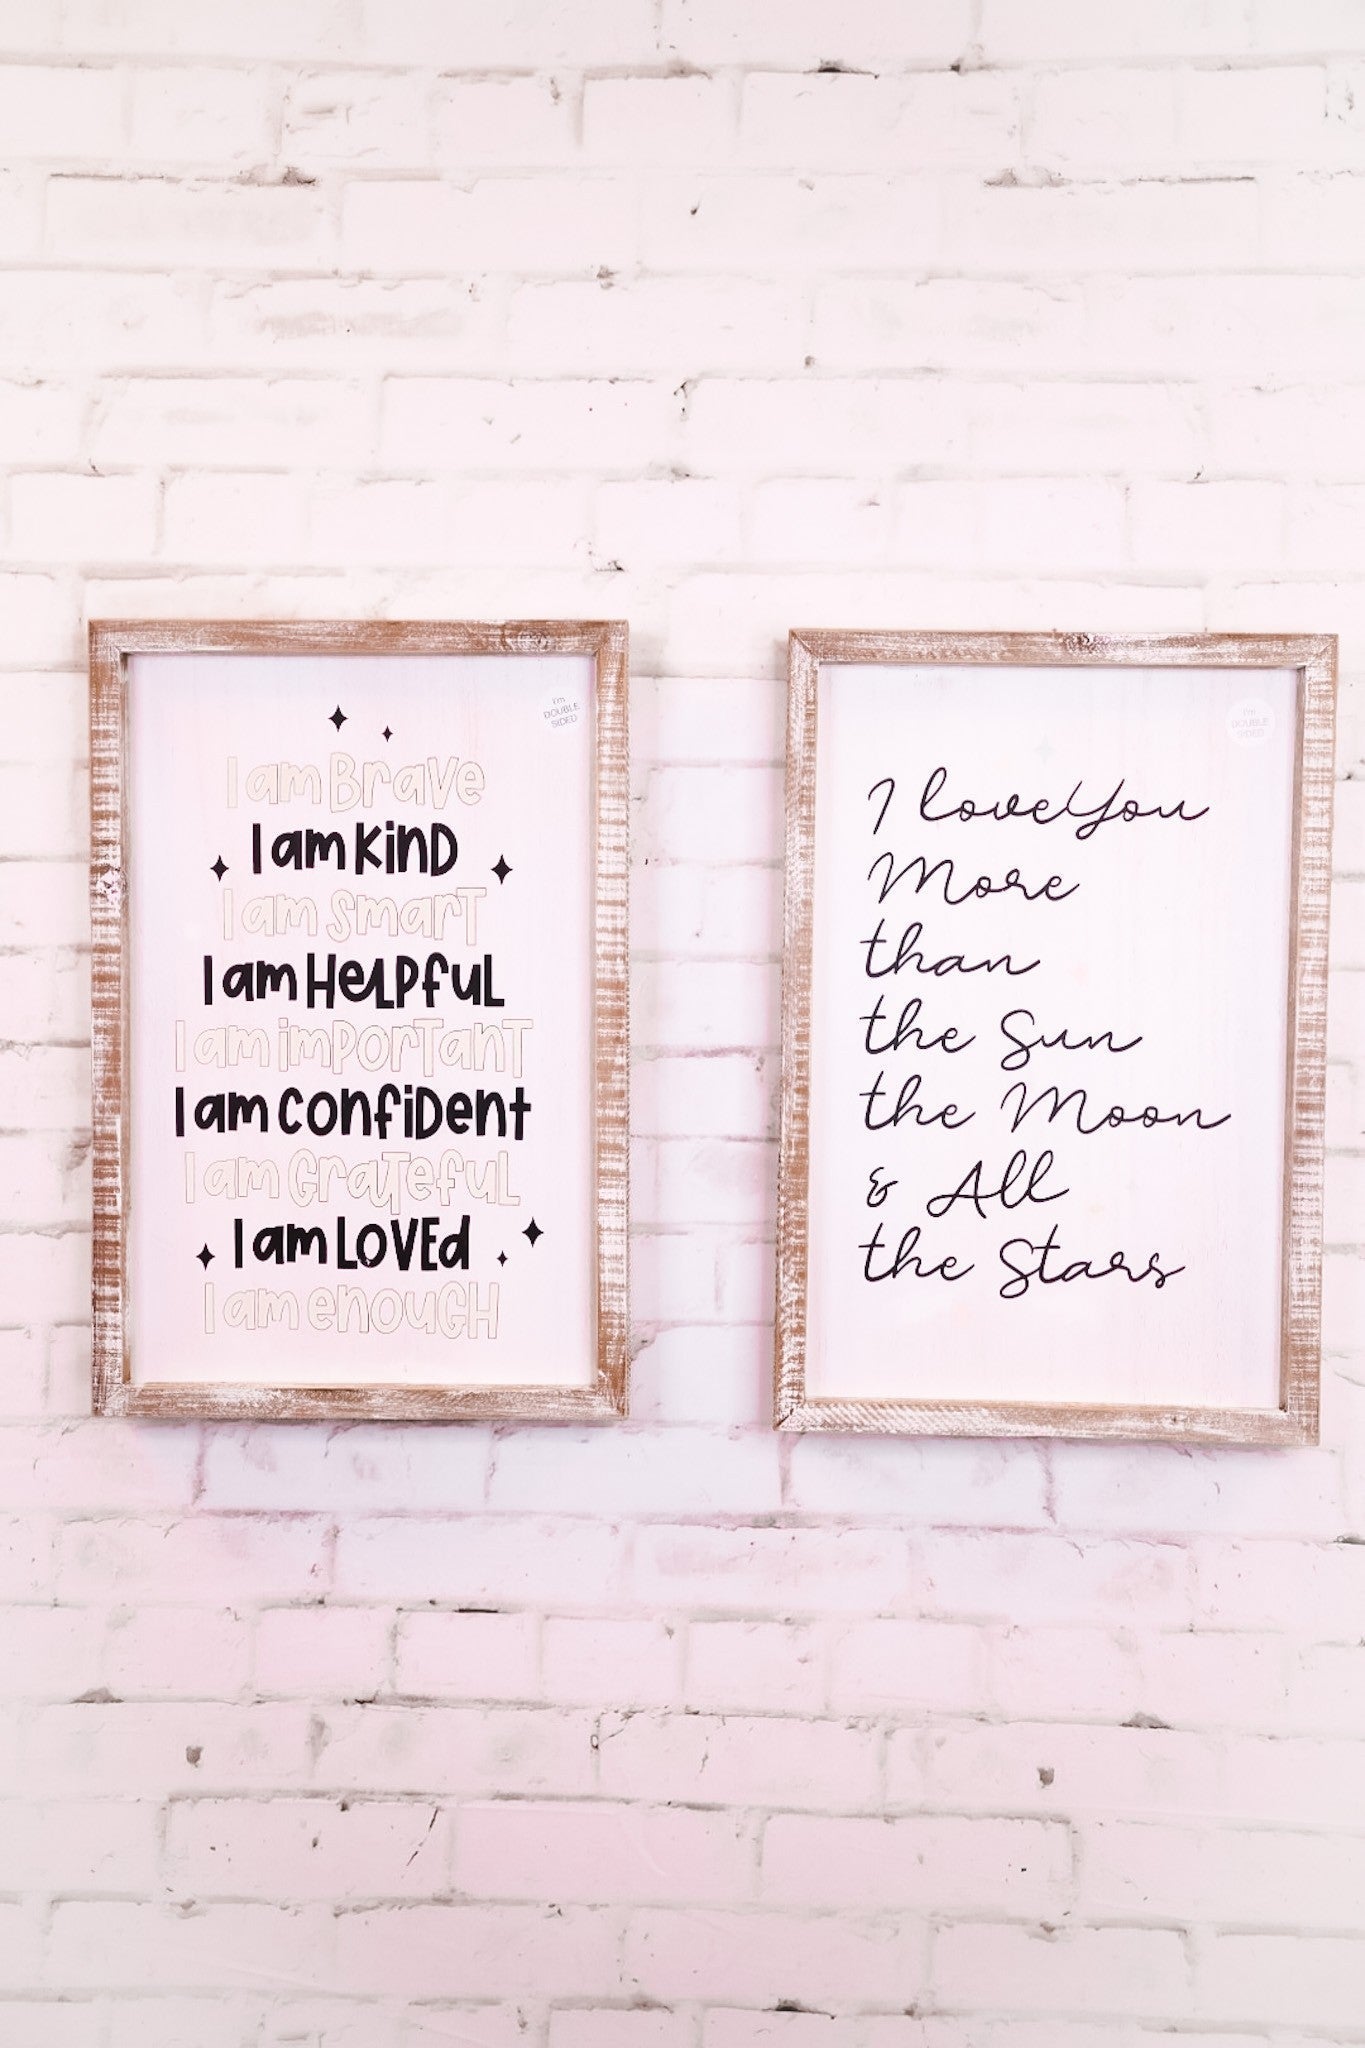 I'm
DOUBLE
SIDED
I am Brave
I am Kind
I am smart
I am Helpful
I am important
I am confident
I am Grateful
I am Loved
I am enough
I'm
DOUBLE
SIDED
I love You
More
than
the Sun
the Moon
& All
the Stars